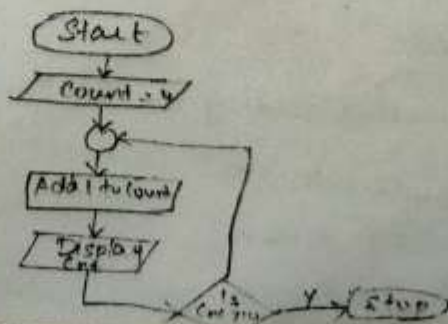 Start
Count = 4
Add 1 to Count
Display
Cnt
Is
Y
Stop